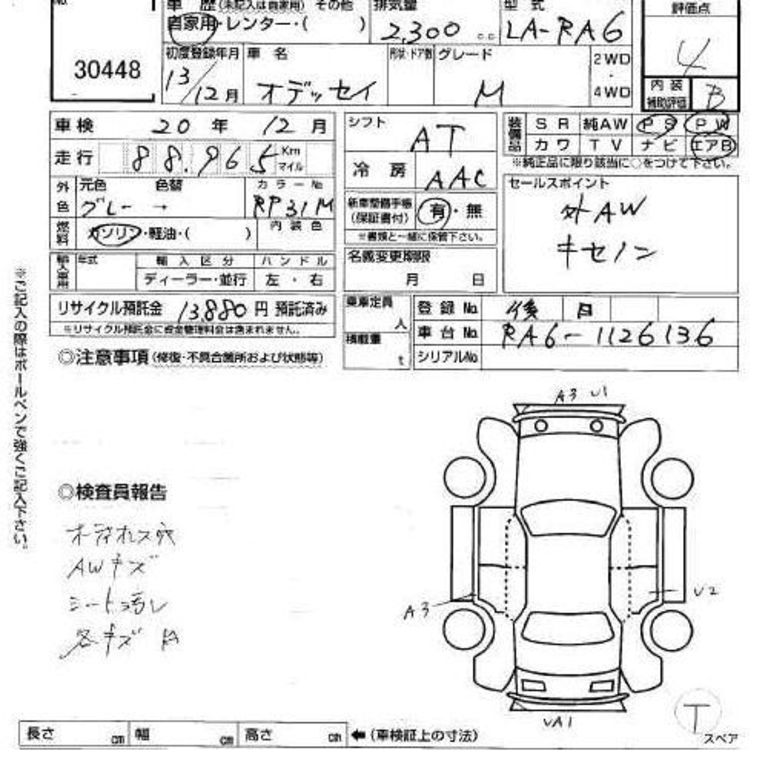 No
30448
車歴(未記入は自家用)その他
自家用・レンター・( )
排気量
2,300 c.c
型式
LA-RA6
評価点
4
初度登録年月
13/12月
車名
オデッセイ
形状・ドア数
グレード
M
2WD
・
4WD
内装
補助評価
B
車検 20年 12月
走行 88.965 Km
マイル
外色
元色 色替 カラーNo
グレー → RP31M
内装色
燃料
ガソリン・軽油・( )
輸入車用
年式 輸入区分 ハンドル
ディーラー・並行 左・右
リサイクル預託金 13,880円 預託済み
※リサイクル預託金に資金管理料金は含まれません。
シフト
AT
冷房
AAC
新車整備手帳
(保証書付) 有・無
※書類と一緒に保管下さい。
名義変更期限
月 日
乗車定員 人
積載量 t
装備品
SR 純AW PS PW
カワ TV ナビ エアB
※純正品に限り該当に○をつけて下さい。
セールスポイント
外AW
キセノン
登録No 後日
車台No RA6-1126136
シリアルNo
◎注意事項(修復・不具合箇所および状態等)
※ご記入の際はボールペンで強くご記入下さい。
◎検査員報告
AWキズ
シート汚レ
各キズ
A3 U1
A3
U2
UA1
T
スペア
長さ cm 幅 cm 高さ cm ←(車検証上の寸法)